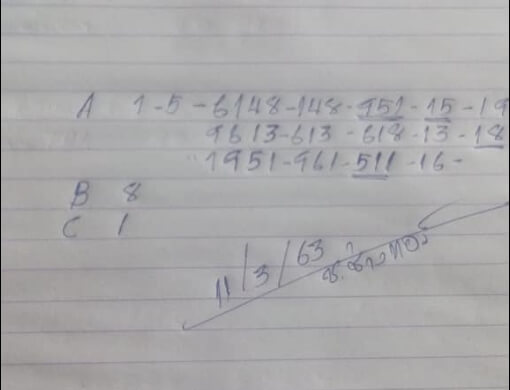 A 1-5-6148-148-951-15-19
9613-613-618-13-18
1951-961-511-16-
B 8
C 1
11/3/63
ช.ช้างทอง